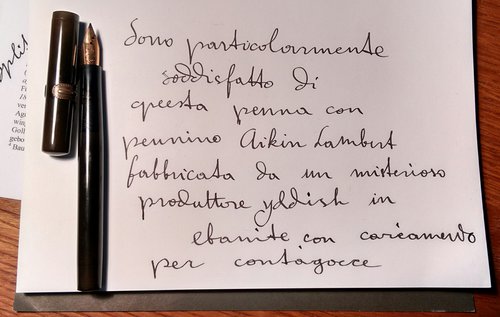 Sono particolarmente
soddisfatto di
questa penna con
pennino Aikin Lambert
fabbricata da un misterioso
produttore yddish in
ebanite con caricamento
per contagocce